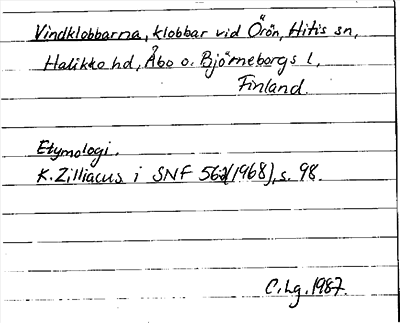 Vindklobbarna, klobbar vid Örön, Hitis sn,
Halikko hd, Åbo o. Björneborgs l,
Finland.
Etymologi.
K. Zilliacus i SNF 56 (1968), s. 98.
C. Lg. 1987.